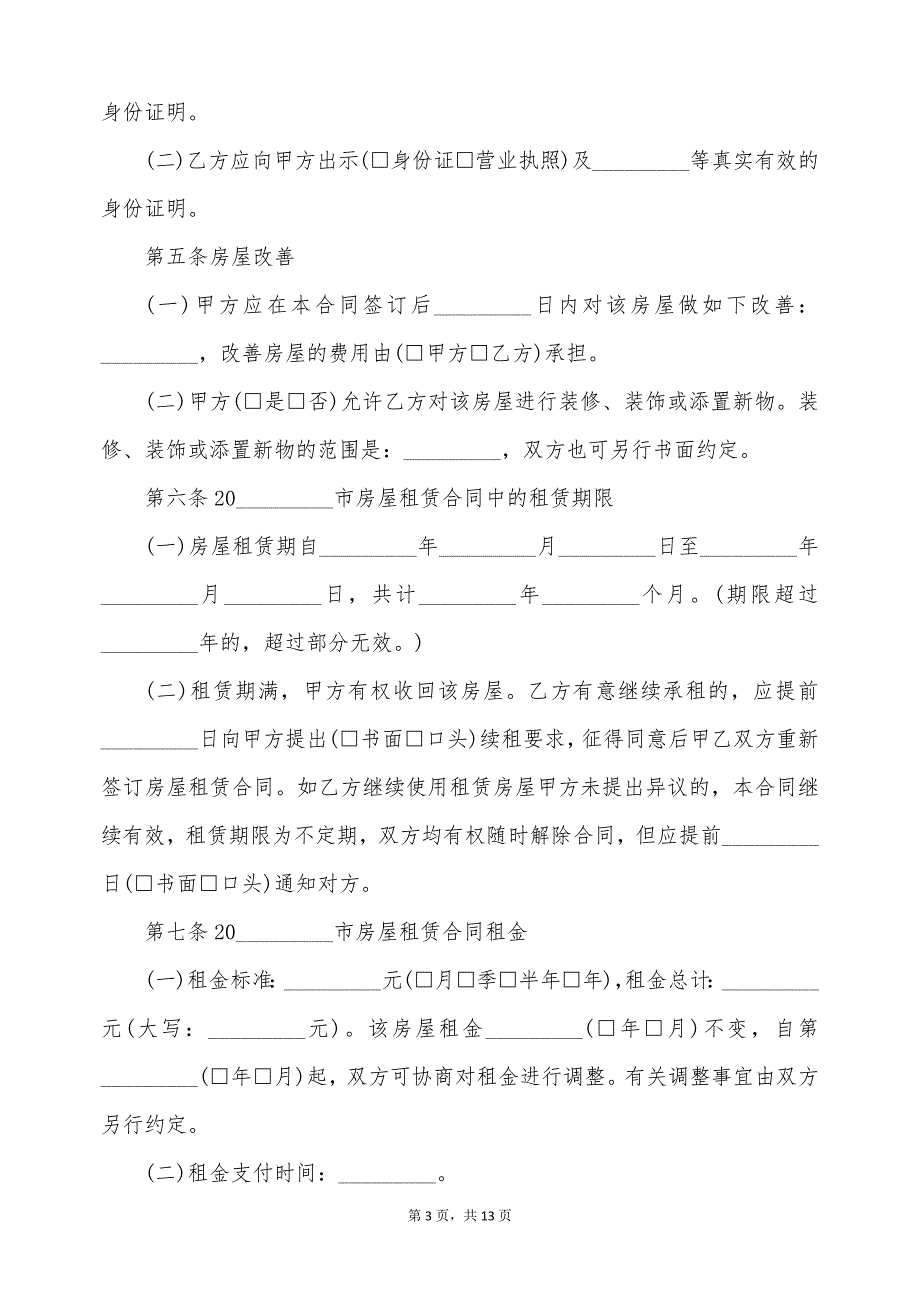 身份证明。
(二)乙方应向甲方出示(□身份证□营业执照)及_________等真实有效的
身份证明。
第五条房屋改善
(一)甲方应在本合同签订后_________日内对该房屋做如下改善：
_________，改善房屋的费用由(□甲方□乙方)承担。
(二)甲方(□是□否)允许乙方对该房屋进行装修、装饰或添置新物。装
修、装饰或添置新物的范围是：_________，双方也可另行书面约定。
第六条 20_________市房屋租赁合同中的租赁期限
(一)房屋租赁期自_________年_________月_________日至_________年
_________月_________日，共计_________年_________个月。(期限超过
_________年的，超过部分无效。)
(二)租赁期满，甲方有权收回该房屋。乙方有意继续承租的，应提前
_________日向甲方提出(□书面□口头)续租要求，征得同意后甲乙双方重新
签订房屋租赁合同。如乙方继续使用租赁房屋甲方未提出异议的，本合同继
续有效，租赁期限为不定期，双方均有权随时解除合同，但应提前_________
日(□书面□口头)通知对方。
第七条 20_________市房屋租赁合同租金
(一)租金标准：_________元(□月□季□半年□年)，租金总计：_________
元(大写：_________元)。该房屋租金_________(□年□月)不变，自第
_________(□年□月)起，双方可协商对租金进行调整。有关调整事宜由双方
另行约定。
(二)租金支付时间：_________。
第 3 页，共 13 页